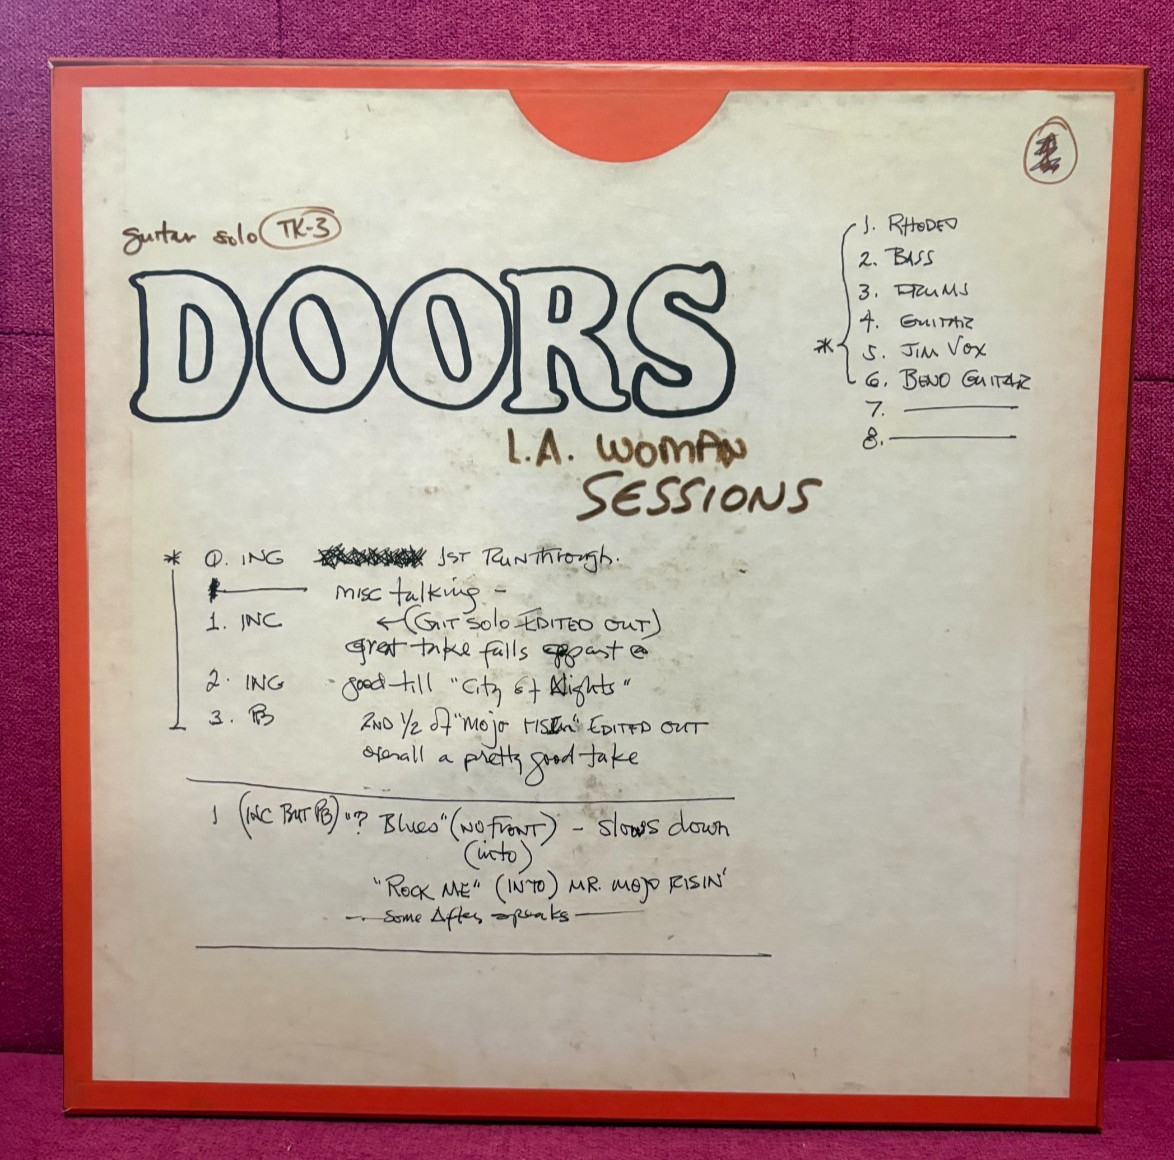 guitar solo TK-3
DOORS
L.A. WOMAN
SESSIONS
1. RHODEO
2. BASS
3. DRUMS
4. GUITAR
5. JIM VOX
6. BENO GUITAR
7.
8.
* 0. ING 1ST RUNThrough.
misc talking -
1. INC ←(GIT SOLO EDITED OUT)
great take falls appart @
2. ING - good till "City of Nights"
3. PB 2ND 1/2 of "Mojo RISIN" EDITED OUT
overall a pretty good take
1 (INC BUT PB) "? Blues" (NO FRONT) - slows down
(into)
"ROCK ME" (INTO) MR. MOJO RISIN'
— Some After speaks —